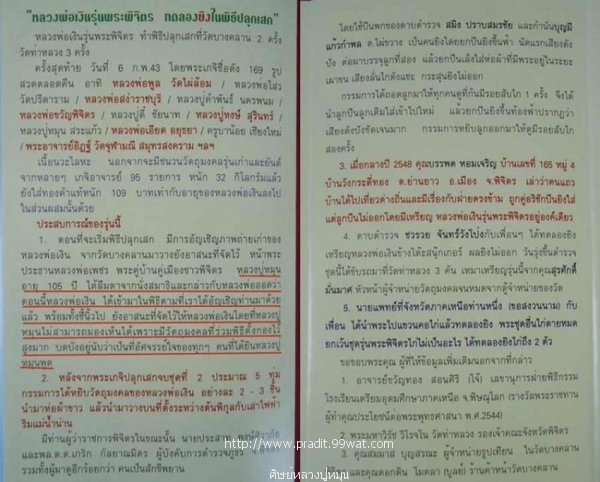 "หลวงพ่อเงินรุ่นพระพิจิตร ทดลองยิงในพิธีปลุกเสก"
หลวงพ่อเงินรุ่นพระพิจิตร ทำพิธีปลุกเสกที่วัดบางคลาน 2 ครั้ง
วัดท่าหลวง 3 ครั้ง
ครั้งสุดท้าย วันที่ 6 ก.พ.43 โดยพระเกจิชื่อดัง 169 รูป
สวดตลอดคืน อาทิ หลวงพ่อพูล วัดไผ่ล้อม / หลวงพ่อไสว
วัดปรีดาราม / หลวงพ่อสง่าราชบุรี / หลวงปู่คำพันธ์ นครพนม /
หลวงพ่อขวัญพิจิตร / หลวงปู่ตี๋ ชัยนาท / หลวงปู่หงษ์ สุรินทร์ /
หลวงปู่หมุน สระแก้ว / หลวงพ่อเอียด อยุธยา / ครูบาน้อย เชียงใหม่
/ พระอาจารย์อิฏฐ์ วัดจุฬามณี สมุทรสงคราม ฯลฯ
เนื้อนวะโลหะ นอกจากจะมีชนวนวัตถุมงคลรุ่นเก่าและยันต์
จากหลายๆ เกจิอาจารย์ 95 รายการ หนัก 32 กิโลกรัมแล้ว
ยังใส่ทองคำแท้หนัก 109 บาทเท่ากับอายุของหลวงพ่อเงินลงไป
ในส่วนผสมนั้นด้วย
ประสบการณ์ของรุ่นนี้
1. ตอนที่จะเริ่มพิธีปลุกเสก มีการอัญเชิญภาพถ่ายเก่าของ
หลวงพ่อเงิน จากวัดบางคลานมาวางยังอาสนะที่จัดไว้ หน้าพระ
ประธานหลวงพ่อเพชร พระคู่บ้านคู่เมืองชาวพิจิตร หลวงปู่หมุน
อายุ 105 ปี ได้ลืมตาจากนั่งสมาธิและกล่าวกับหลวงพ่อออดว่า
ตอนนี้หลวงพ่อเงิน ได้เข้ามาในพิธีตามที่เราได้อัญเชิญท่านมาด้วย
แล้ว พร้อมทั้งชี้นิ้วไป ยังอาสนะที่จัดไว้ให้หลวงพ่อเงินโดยที่หลวงปู่
หมุนไม่สามารถมองเห็นได้เพราะมีวัตถุมงคลที่ร่วมพิธีตั้งกองไว้
สูงมาก บดบังอยู่นับว่าเป็นที่อัศจรรย์ใจของทุกๆ คนที่ได้ยินหลวงปู่
หมุนพูด
2. หลังจากพระเกจิปลุกเสกจบชุดที่ 2 ประมาณ 5 ทุ่ม
กรรมการได้หยิบวัตถุมงคลของหลวงพ่อเงิน อย่างละ 2 - 3 ชิ้น
นำมาห่อผ้าขาว แล้วนำมาวางบนที่ตั้งระหว่างต้นพิกุลกับเสาไฟฟ้า
ริมแม่น้ำน่าน
มีท่านผู้ว่าราชการพิจิตรในขณะนั้น นายประสาท พงษ์ศิวาภัย
และพล.ต.ต.เกริก กัลยาณมิตร ผู้บังคับการตำรวจภูธร
รวมทั้งผู้มาดูอีกร้อยกว่า คนเป็นสักขีพยาน
โดยใช้ปืนพกของดาบตำรวจ สมิง ปราบสมรชัย และกำนันบุญมี
แก้วกำพล ต.ไผ่ขวาง เป็นคนยิงโดยยกปืนยิงขึ้นฟ้า นัดแรกเสียงดัง
ปัง ต่อมาบรรจุลูกที่สอง แล้วยกปืนเล็งใส่ห่อผ้าที่มีพระอยู่ในระยะ
เผาขน เสียงลั่นไกดังแชะ กระสุนยิงไม่ออก
กรรมการได้ถอดลูกมาให้ทุกคนดูที่ก้นมีรอยสับไก 1 ครั้ง จึงได้
นำลูกปืนลูกเดิมใส่เข้าไปใหม่ แล้วยกปืนยิงขึ้นท้องฟ้าปรากฏว่า
เสียงดังปังชัดเจนมาก กรรมการหยิบลูกออกมาให้ดูมีรอยสับไก
สองครั้ง
3. เมื่อกลางปี 2548 คุณบรรพต หอมเจริญ บ้านเลขที่ 165 หมู่ 4
บ้านวังกระดี่ทอง ต.ย่านยาว อ.เมือง จ.พิจิตร เล่าว่าตนแถว
บ้านได้ไปเที่ยวต่างถิ่นและมีเรื่องกับฝ่ายตรงข้าม ถูกคู่อริชักปืนยิงใส่
แต่ลูกปืนไม่ออกโดยมีเหรียญ หลวงพ่อเงินรุ่นพระพิจิตรอยู่องค์เดียว
4. ดาบตำรวจ ชวรวย จันทร์วังโป่งกับเพื่อนๆ ได้ทดลองยิง
เหรียญหลวงพ่อเงินข้างโต๊ะสนุ๊กเกอร์ ผลยิงไม่ออก วันรุ่งขึ้นตำรวจ
ชุดนี้ได้ขับรถมาที่วัดท่าหลวง 3 คัน เหมาเหรียญรุ่นนี้จากคุณสุรศักดิ์
มั่นมาศ หัวหน้าผู้จำหน่ายวัตถุมงคลจนหมดจากตู้จำหน่ายของวัด
5. นายแพทย์ที่จังหวัดภาคเหนือท่านหนึ่ง (ขอสงวนนาม) กับ
เพื่อน ได้นำพระไปแขวนคอไก่แล้วทดลองยิง พระชุดอื่นไก่ตายหมด
ยกเว้นชุดรุ่นพระพิจิตรไก่ไม่เป็นอะไร ได้ทดลองยิงไก่ถึง 2 ตัว
ขอขอบพระคุณ ผู้ที่ให้ข้อมูลเพิ่มเติมนอกจากที่กล่าว
1. อาจารย์ขวัญทอง สอนศิริ (โจ้) เลขานุการฝ่ายพิธีกรรม
โรงเรียนเตรียมอุดมศึกษาภาคเหนือ จ.พิษณุโลก (รางวัลพระราชทาน
ผู้ทำคุณประโยชน์ต่อพระพุทธศาสนา พ.ศ.2544)
2. พระมหาวิรัช วิโรจโน วัดท่าหลวง รองเจ้าคณะจังหวัดพิจิตร
3. คุณสมมาส บุญสรณะ ผู้อำนวย ในวัดบางคลาน
และคุณดอกดิน โมคลา (บูลย์) ร้านค้าหน้าวัดบางคลาน
http://www.pradit.99wat.com
ศิษย์หลวงปู่หมุน